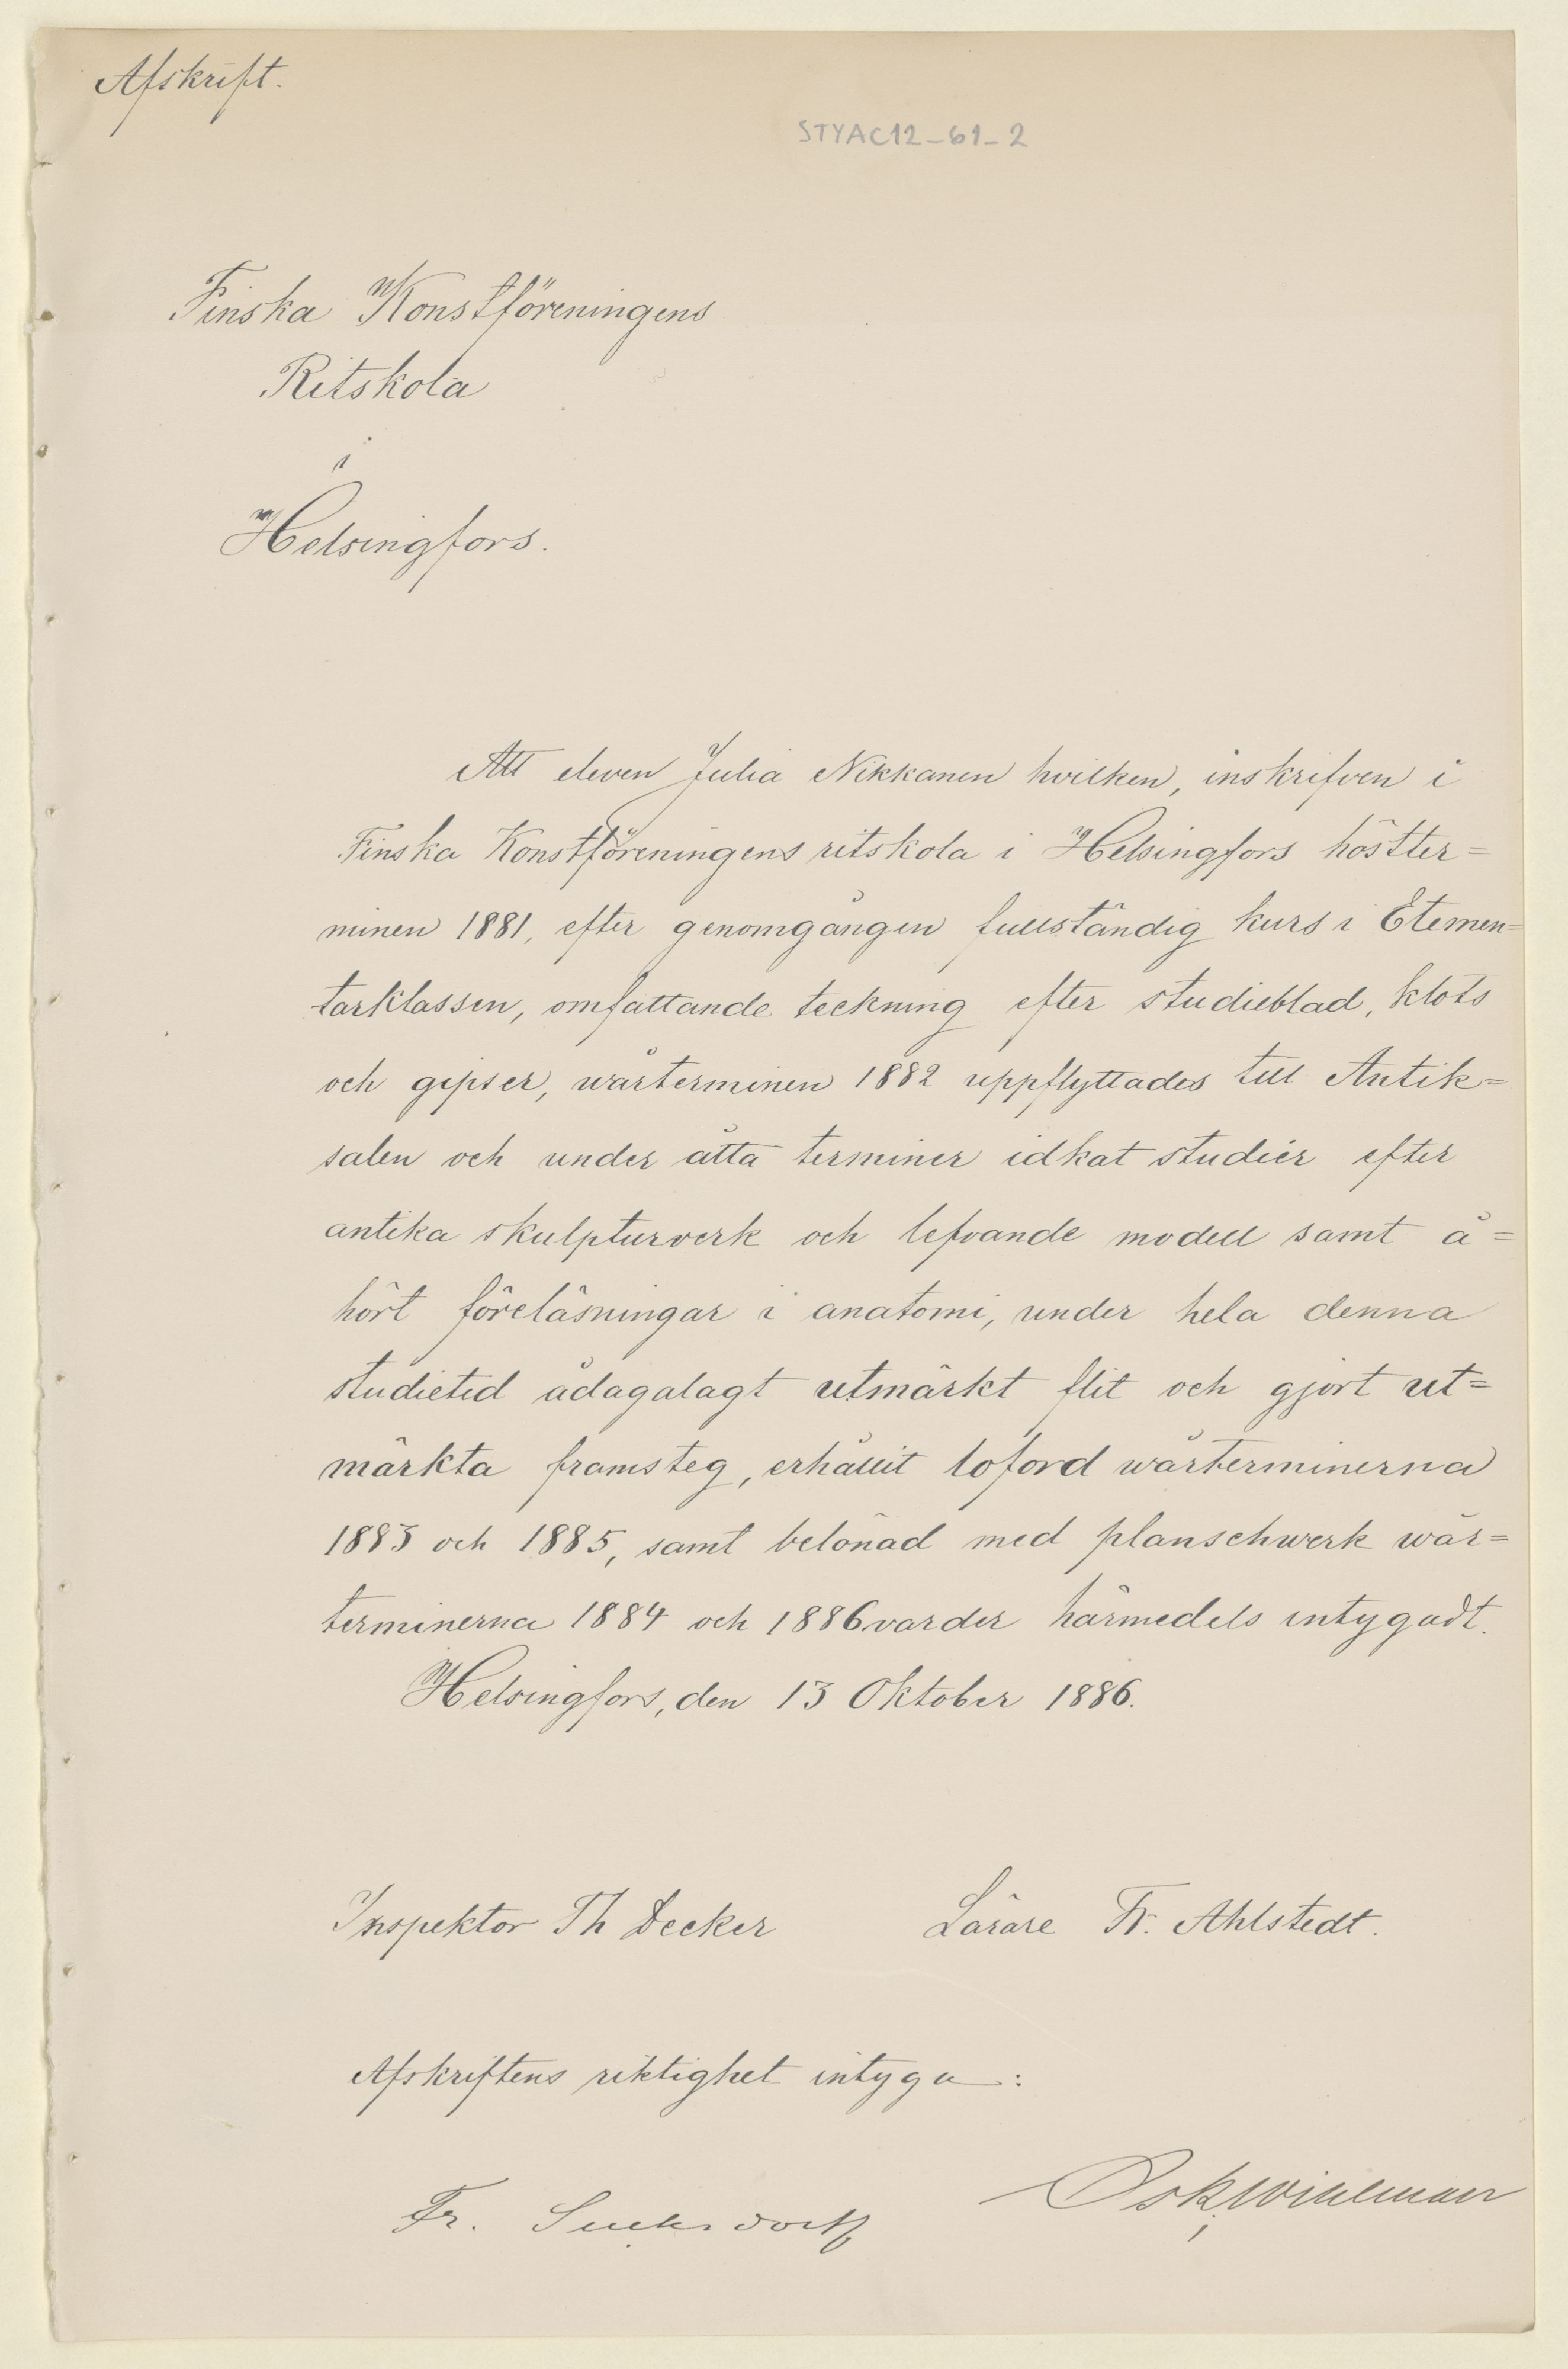 Afskrift.
STYAC12-61-2
Finska Konstföreningens
Ritskola
i
Helsingfors.
Att eleven Julia Nikkanen hvilken, inskrifven i
Finska Konstföreningens ritskola i Helsingfors höstter=
minen 1881, efter genomgången fullständig kurs i Elemen=
tarklassen, omfattande teckning efter studieblad, klots
och gipser, wårterminen 1882 uppflyttades till Antik=
salen och under åtta terminer idkat studier efter
antika skulpturverk och lefvande modell samt å=
hört föreläsningar i anatomi, under hela denna
studietid ådagalagt utmärkt flit och gjort ut=
märkta framsteg, erhållit loford wårterminerna
1883 och 1885, samt belönad med planschwerk wår=
terminerna 1884 och 1886 varder härmedels intygadt.
Helsingfors, den 13 Oktober 1886.
Inspektor Th Decker Lärare Fr. Ahlstedt.
Afskriftens riktighet intyga:
Fr. Sucksdorff